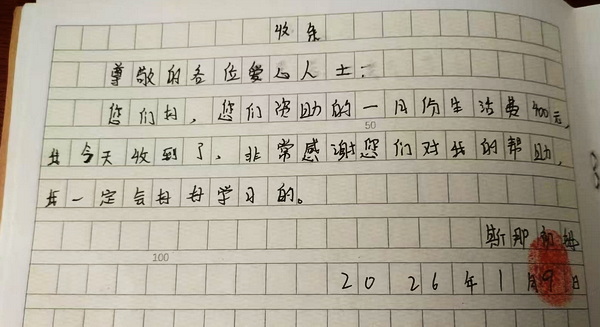 收条
尊敬的各位爱心人士：
您们好，您们资助的一月份生活费400元，
50
我今天收到了，非常感谢您们对我的帮助，
我一定会好好学习的。
斯那
100
2026年1月9日